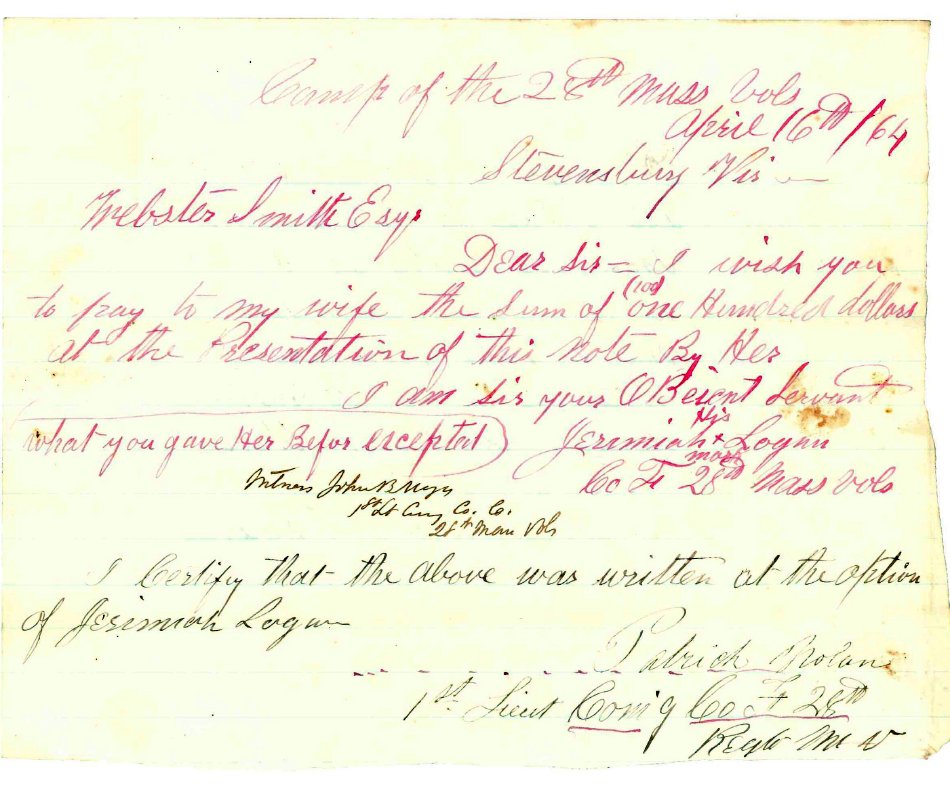 Camp of the 28th Mass Vols
April 16th /64
Stevensburg Vir
Webster Smith Esqr
Dear Sir = I wish you
(100)
to pay to my wife the Sum of one Hundred dollars
at the Presentation of this Note By Her
I am sir your OBeient Servant
His
what you gave Her Befor excepted
Jerimiah + Logan
mark
Co F 28th Mass Vols
Witness John B
1st Lt Co. C.
28th Mass Vols
I Certify that the above was written at the option
of Jerimiah Logan
Patrick Nolan
1st Lieut Com'g Co F 28th
Regt M V